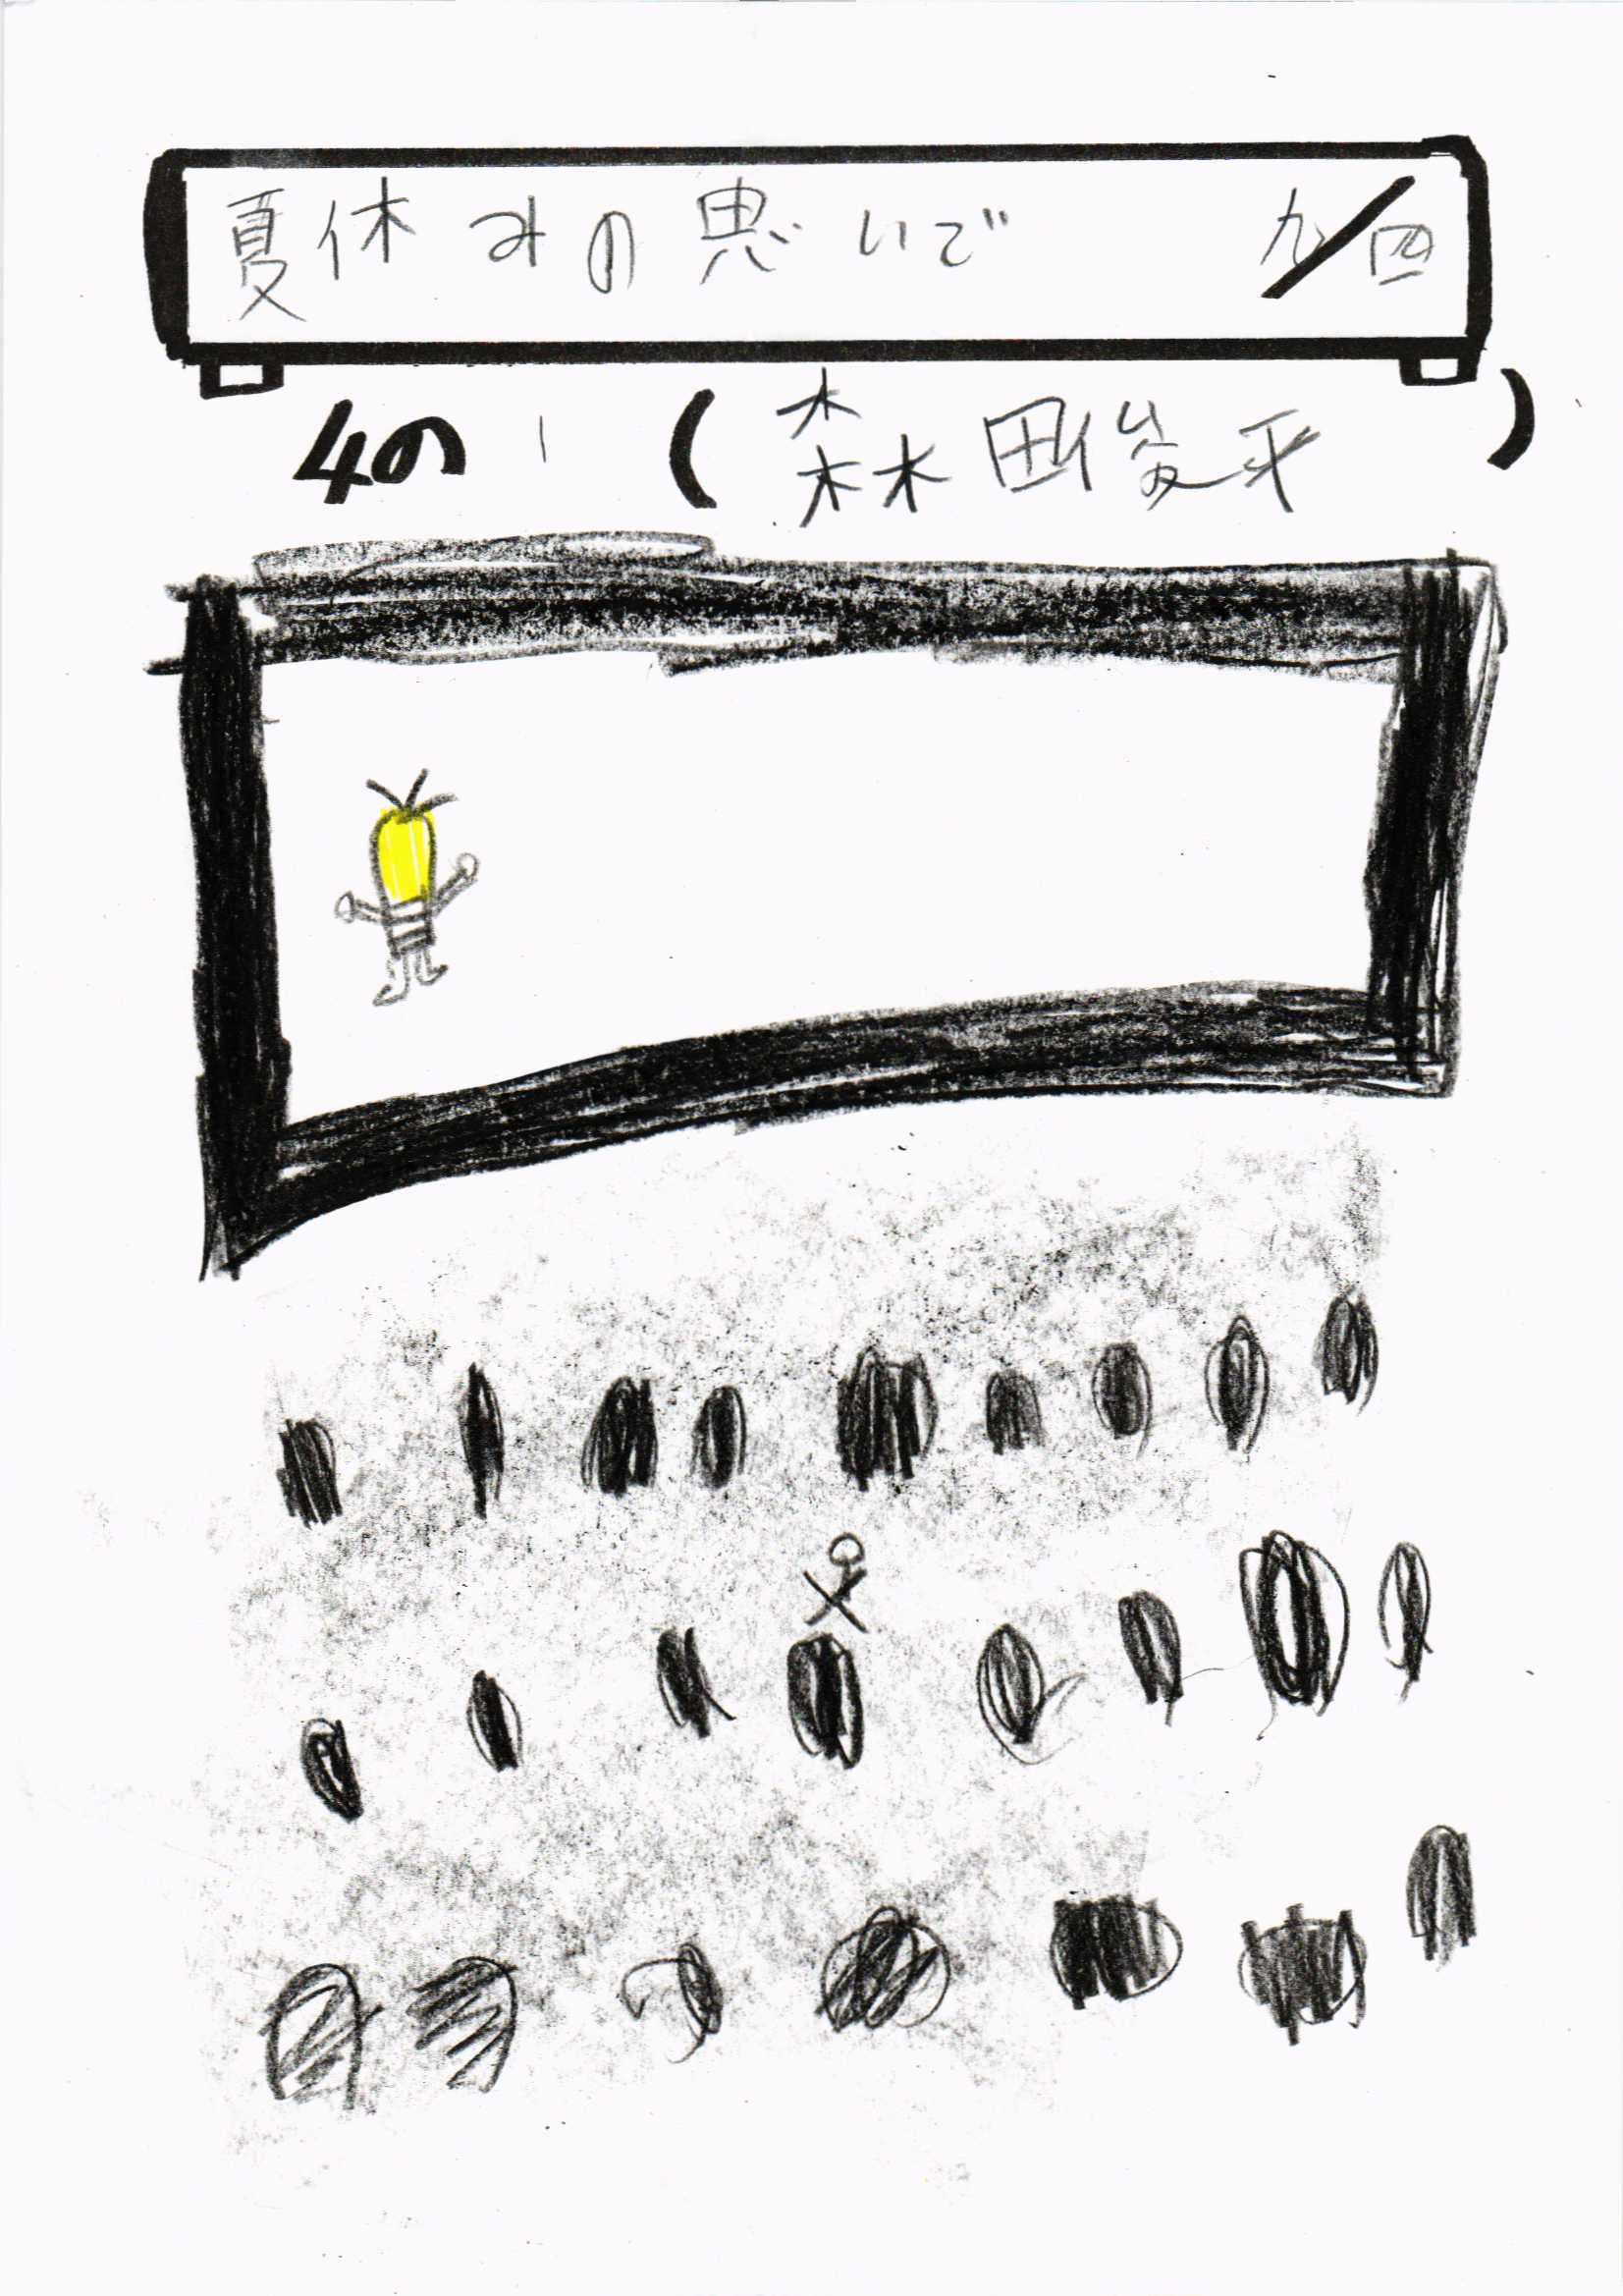 夏休みの思いで 九/四
4の1 (森田俊平)